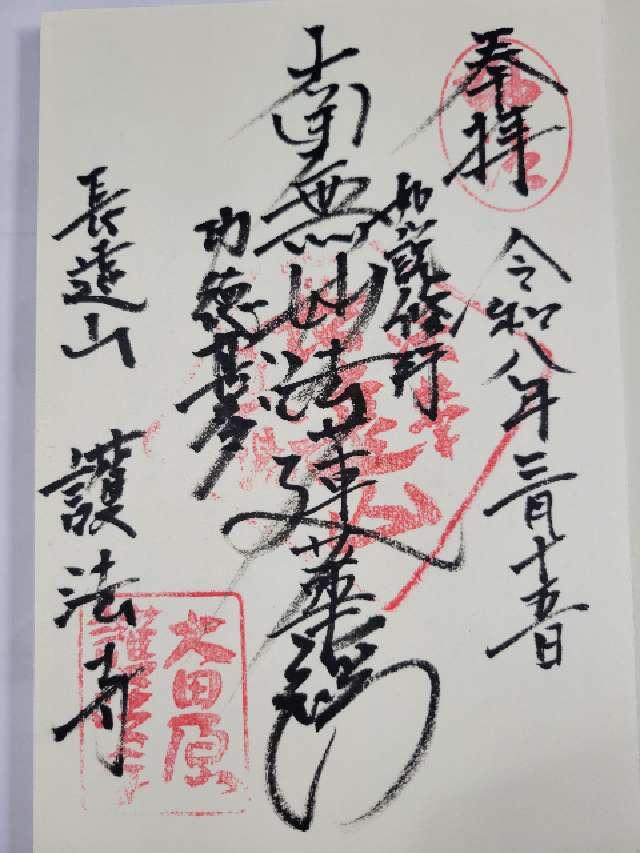 奉拝
令和八年三月十五日
如説修行
南無妙法蓮華経
功徳甚多
長遠山 護法寺
大田原
護法寺